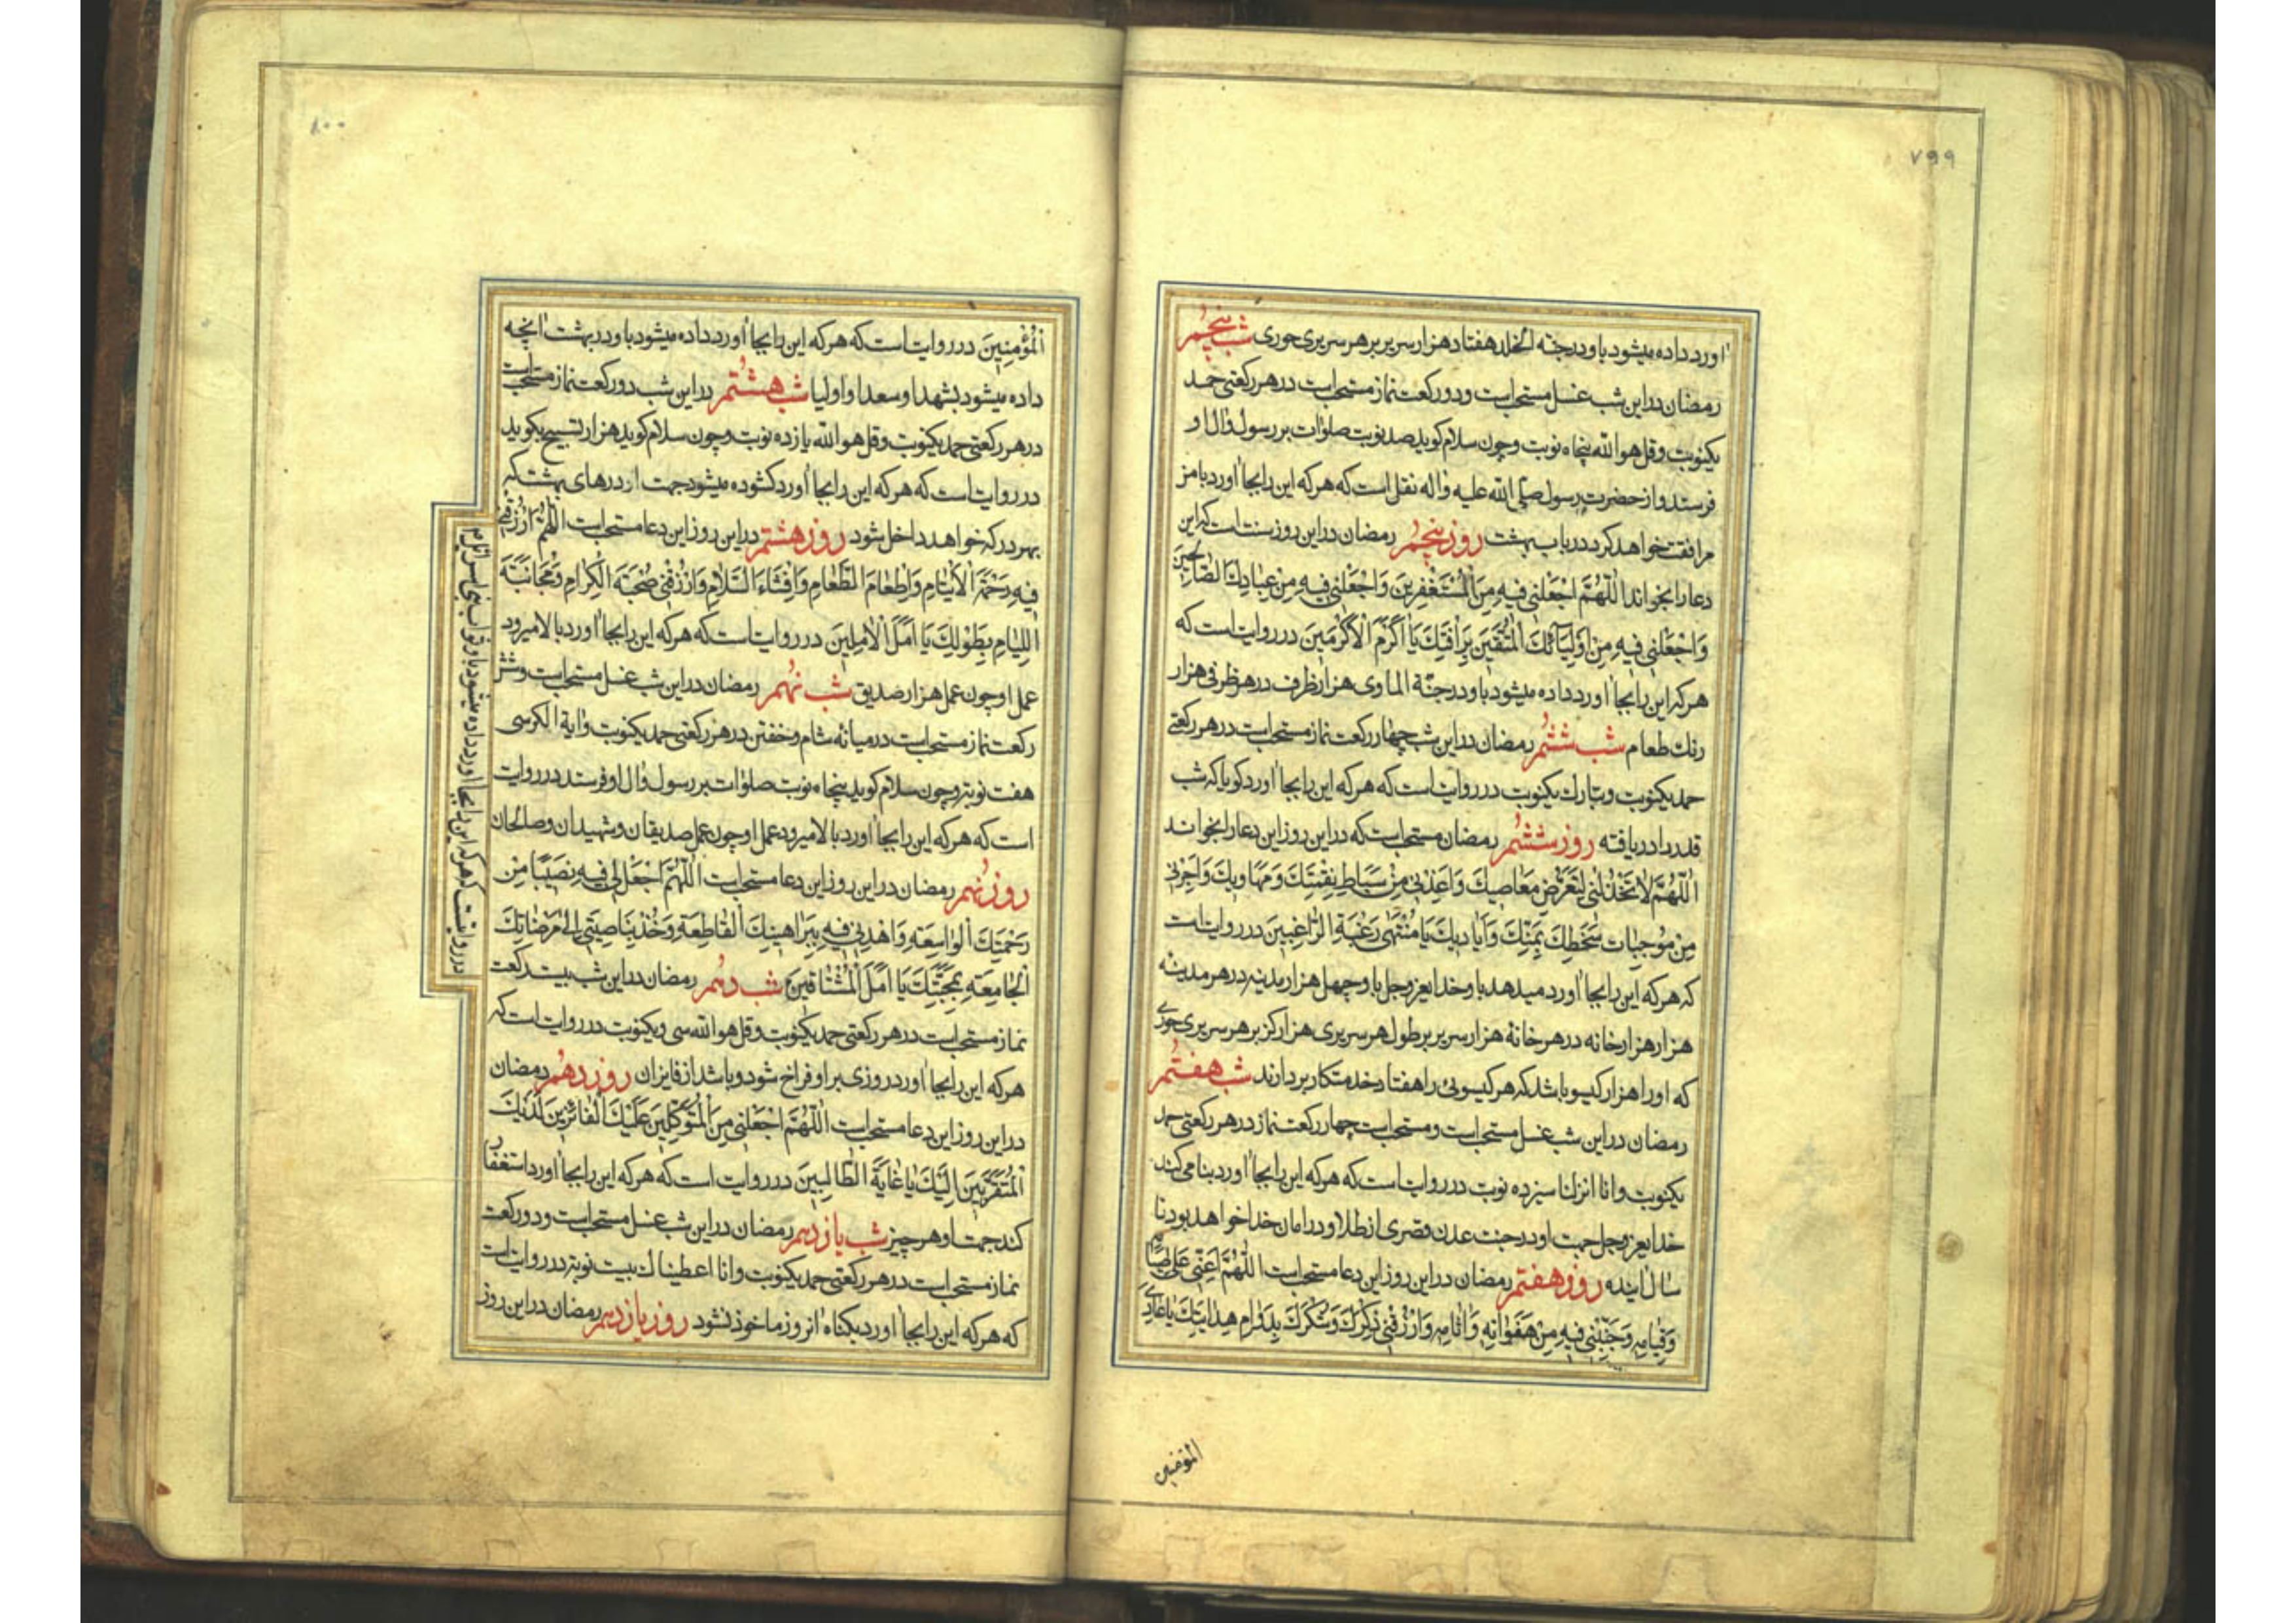 ٧٩٩
اورد داده میشود باو در جنة الخلد هفتاد هزار سریر بر هر سریری حوری شب پنجم
رمضان در این شب غسل مستحبست و دو رکعت نماز مستحبست در هر رکعتی حمد
یکنوبت و قل هو الله پنجاه نوبت و چون سلام کوید صد نوبت صلوات بر رسول و ال او
فرستد و از حضرت رسول صلی الله علیه و اله نقل است که هر که این را بجا اورد با من
مرافقت خواهد کرد در باب بهشت روز پنجم رمضان در این روز سنت است که این
دعا را بخواند اَللّهُمَّ اجْعَلْنی فیهِ مِنَ الْمُسْتَغْفِرینَ وَاجْعَلْنی فیهِ مِنْ عِبادِكَ الصّالِحینَ
وَاجْعَلْنی فیهِ مِنْ اَوْلِیآئِكَ الْمُتَّقینَ بِرَأفَتِكَ یا اَکْرَمَ الْاَکْرَمینَ در روایت است که
هر که این را بجا اورد داده میشود باو در جنّة الماوی هزار ظرف در هر ظرفی هزار
رنك طعام شب ششم رمضان در این شب چهار رکعت نماز مستحبست در هر رکعتی
حمد یکنوبت و تبارك یکنوبت در روایت است که هر که این را بجا اورد کویا که شب
قدر را دریافته روز ششم رمضان مستحبست که در این روز این دعا را بخواند
اَللّهُمَّ لا تَخْذُلْنی لِتَعَرُّضِ مَعاصیكَ وَاَعِذْنی مِنْ سِیاطِ نِقْمَتِكَ وَمَهاویكَ وَاَجِرْنی
مِنْ مُوجِباتِ سَخَطِكَ بِمَنِّكَ وَاَیادیكَ یا مُنْتَهی رَغْبَةِ الرّاغِبینَ در روایت است
که هر که این را بجا اورد میدهد باو خدایعزوجل باو چهل هزار مدینه در هر مدینه
هزار هزار خانه در هر خانهٔ هزار سریر بر طول هر سریری هزار کز بر هر سریری حوری
که او را هزار کیسو باشد که هر کیسوئی را هفتاد خدمتکار بردارند شب هفتم
رمضان در این شب غسل مستحبست و مستحبست چهار رکعت نماز در هر رکعتی حمد
یکنوبت و انا انزلنا سیزده نوبت در روایت است که هر که این را بجا اورد بنا می کند
خدایعزوجل جهت او در جنت عدن قصری از طلا و در امان خدا خواهد بود تا
سال اینده روز هفتم رمضان در این روز این دعا مستحبست اَللّهُمَّ اَعِنّی عَلی صِیامِهِ
وَقِیامِهِ وَجَنِّبْنی فیهِ مِنْ هَفَواتِهِ وَاٰثامِهِ وَارْزُقْنی ذِکْرَكَ وَشُکْرَكَ بِدَوامِ هِدایَتِكَ یا هادِیَ
المؤمنین
٨٠٠
اَلْمُؤْمِنینَ در روایت است که هر که این را بجا اورد داده میشود باو در بهشت انچه
داده میشود بشهدا و سعدا و اولیا شب هشتم در این شب دو رکعت نماز مستحبست
در هر رکعتی حمد یکنوبت و قل هو الله یازده نوبت و چون سلام کوید هزار تسبیح بکوید
در روایت است که هر که این را بجا اورد کشوده میشود جهت او درهای بهشت که
بهر در که خواهد داخل شود روز هشتم در این روز این دعا مستحبست اَللّهُمَّ ارْزُقْنی
فیهِ رَحْمَةَ الْاَیْتامِ وَاِطْعامَ الطَّعامِ وَاِفْشاءَ السَّلامِ وَارْزُقْنی صُحْبَةَ الْکِرامِ وَمُجانَبَةَ
اللِّئامِ بِطَوْلِكَ یا اَمَلَ الْاٰمِلینَ در روایت است که هر که این را بجا اورد بالا میرود
عمل او چون عمل هزار صدیق شب نهم رمضان در این شب غسل مستحبست و شش
رکعت نماز مستحبست در میانهٔ شام و خفتن در هر رکعتی حمد یکنوبت و ایة الکرسی
هفت نوبة و چون سلام کوید پنجاه نوبت صلوات بر رسول و ال او فرستد در روایت
است که هر که این را بجا اورد بالا میرود عمل او چون عمل صدیقان و شهیدان و صالحان
روز نهم رمضان در این روز این دعا مستحبست اَللّهُمَّ اجْعَلْ لی فیهِ نَصیبًا مِنْ
رَحْمَتِكَ الْواسِعَةِ وَاهْدِنی فیهِ بِبَراهینِكَ الْقاطِعَةِ وَخُذْ بِناصِیَتی اِلی مَرْضاتِكَ
الْجامِعَةِ بِمَحَبَّتِكَ یا اَمَلَ الْمُشْتاقینَ شب دهم رمضان در این شب بیست رکعت
نماز مستحبست در هر رکعتی حمد یکنوبت و قل هو الله سی و یکنوبت در روایت است که
هر که این را بجا اورد روزی بر او فراخ شود و باشد از فایزان روز دهم رمضان
در این روز این دعا مستحبست اَللّهُمَّ اجْعَلْنی مِنَ الْمُتَوَکِّلینَ عَلَیْكَ الْفائِزینَ لَدَیْكَ
الْمُقَرَّبینَ اِلَیْكَ یا غایَةَ الطّالِبینَ در روایت است که هر که این را بجا اورد استغفار
کند جهت او هر چیز شب یازدهم رمضان در این شب غسل مستحبست و دو رکعت
نماز مستحبست در هر رکعتی حمد یکنوبت و انا اعطیناك بیست نوبة در روایت است
که هر که این را بجا اورد بکناه انروز ماخوذ نشود روز یازدهم رمضان در این روز
در روایتست که هر که این را بجا اورد داده میشود باو ثواب بنی اسرائیل